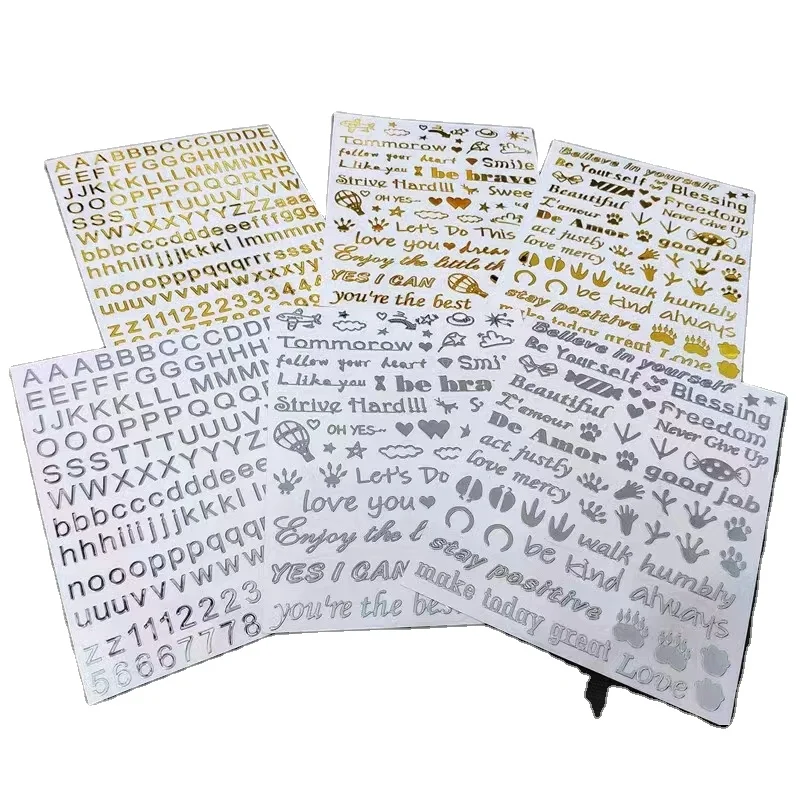 AAABBBCCCDDDE
EEFFFGGGHHHIIIJ
JJKKLLLMMMNNN
OOOPPPQQQRRR
SSSTTTUUUVVVW
WWXXXYYYZZZaaa
bbbcccdddeeefffggg
hhhiiijjjkkkl lmmmnnn
nooopppqqqrrrssst
uuuvvvwwwxxxyyyzz
zz1112223334
Tommorow
follow your heart Smile
I like you be brave
Strive Hard!!! Swee
OH YES~
Let's Do This
love you dream
Enjoy the little th
YES I CAN
you're the best
Believe in yourself
Be Yourself Blessing
Beautiful Freedom
L'amour Never Give Up
De Amor good job
act justly
love mercy
walk humbly
be kind always
stay positive
make today great Love
AAABBBCCCDDD
EEEFFFGGGHHH
JJKKKLLLMMM
OOOPPPQQQ
SSSTTTUUUV
WWXXXYYYZ
bbbcccdddeee
hhhiiijjjkkkl lm
nooopppqqq
uuuvvvwww
zz1112223
56667778
Tommorow
follow your heart Smi
I like you be bra
Strive Hard!!! S
OH YES~
Let's Do
love you
Enjoy the l
YES I CAN
you're the best
Believe in yourself
Be Yourself Blessing
Beautiful Freedom
L'amour Never Give Up
De Amor good job
act justly
love mercy
walk humbly
be kind always
stay positive
make today great Love